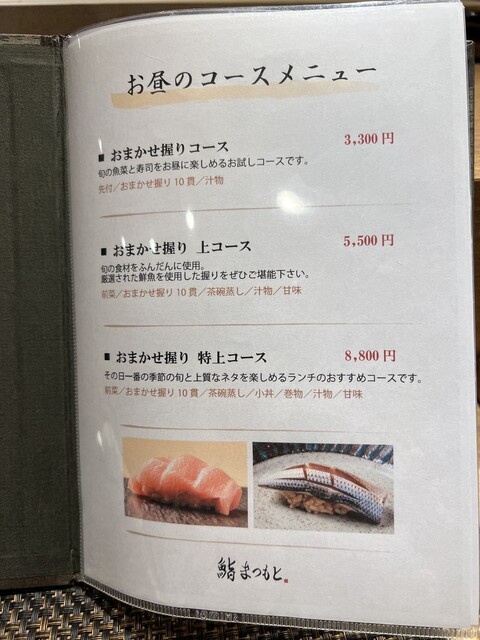 お昼のコースメニュー
■ おまかせ握りコース 3,300円
旬の魚菜と寿司をお昼に楽しめるお試しコースです。
先付／おまかせ握り10貫／汁物
■ おまかせ握り 上コース 5,500円
旬の食材をふんだんに使用。
厳選された鮮魚を使用した握りをぜひご堪能下さい。
前菜／おまかせ握り10貫／茶碗蒸し／汁物／甘味
■ おまかせ握り 特上コース 8,800円
その日一番の季節の旬と上質なネタを楽しめるランチのおすすめコースです。
前菜／おまかせ握り10貫／茶碗蒸し／小丼／巻物／汁物／甘味
鮨 まつもと